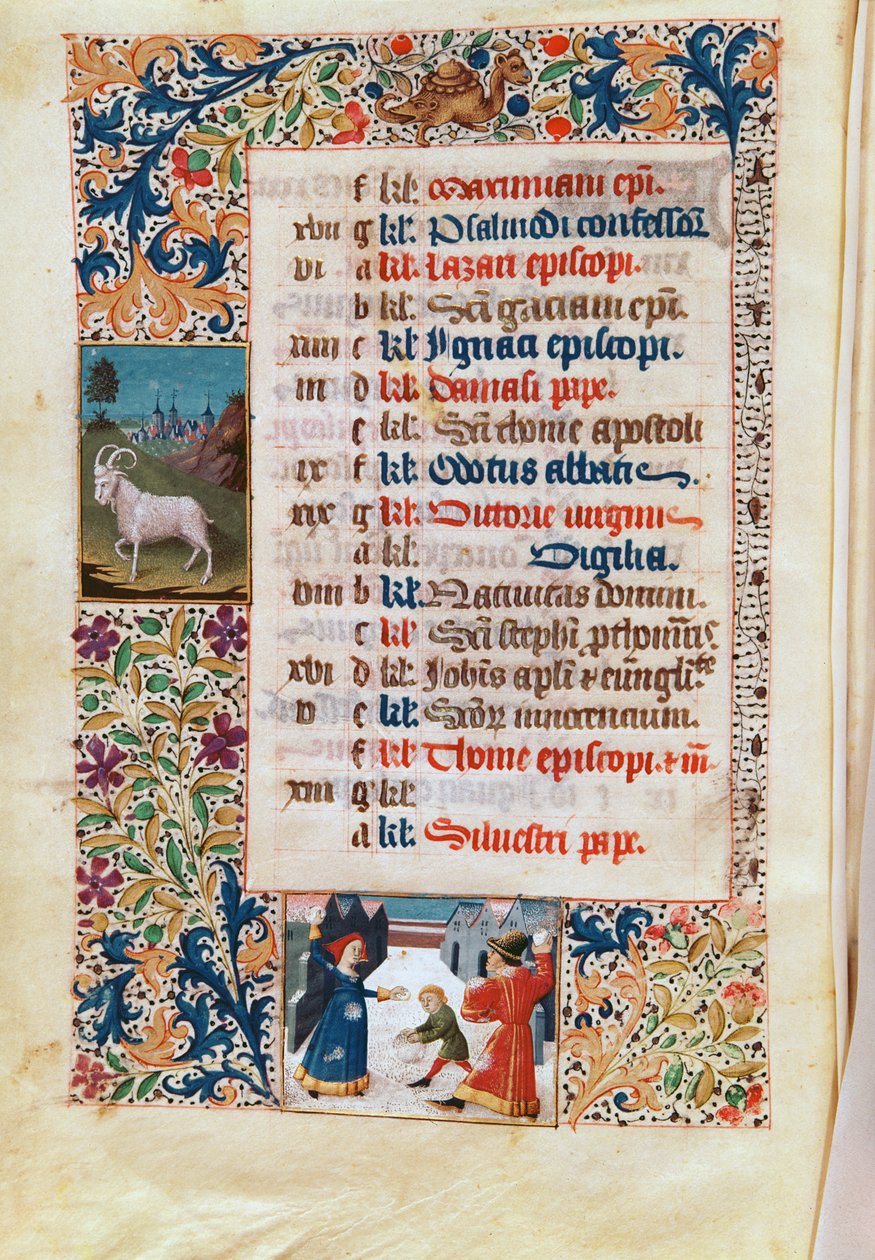 f kl. Maximiani epi.
xvii g kl. Psalmodi confessor
vi a kl. Lazari episcopi.
b kl. Sci gaciani epi.
xiiii c kl Ignaci episcopi.
iii d kl. Damasi pape.
e kl. Sci thome apostoli
xi f kl. Odotus abbatis.
xix g kl. Victorie virginis
a kl. Vigilia.
viii b kl. Nativitas domini.
c kl Sci stephi prthomris
xvi d kl. Johis apli & eungliste
v e kl. Scor innocencium.
f kl Thome episcopi. & m
xiii g kl.
a kl. Silvestri pape.